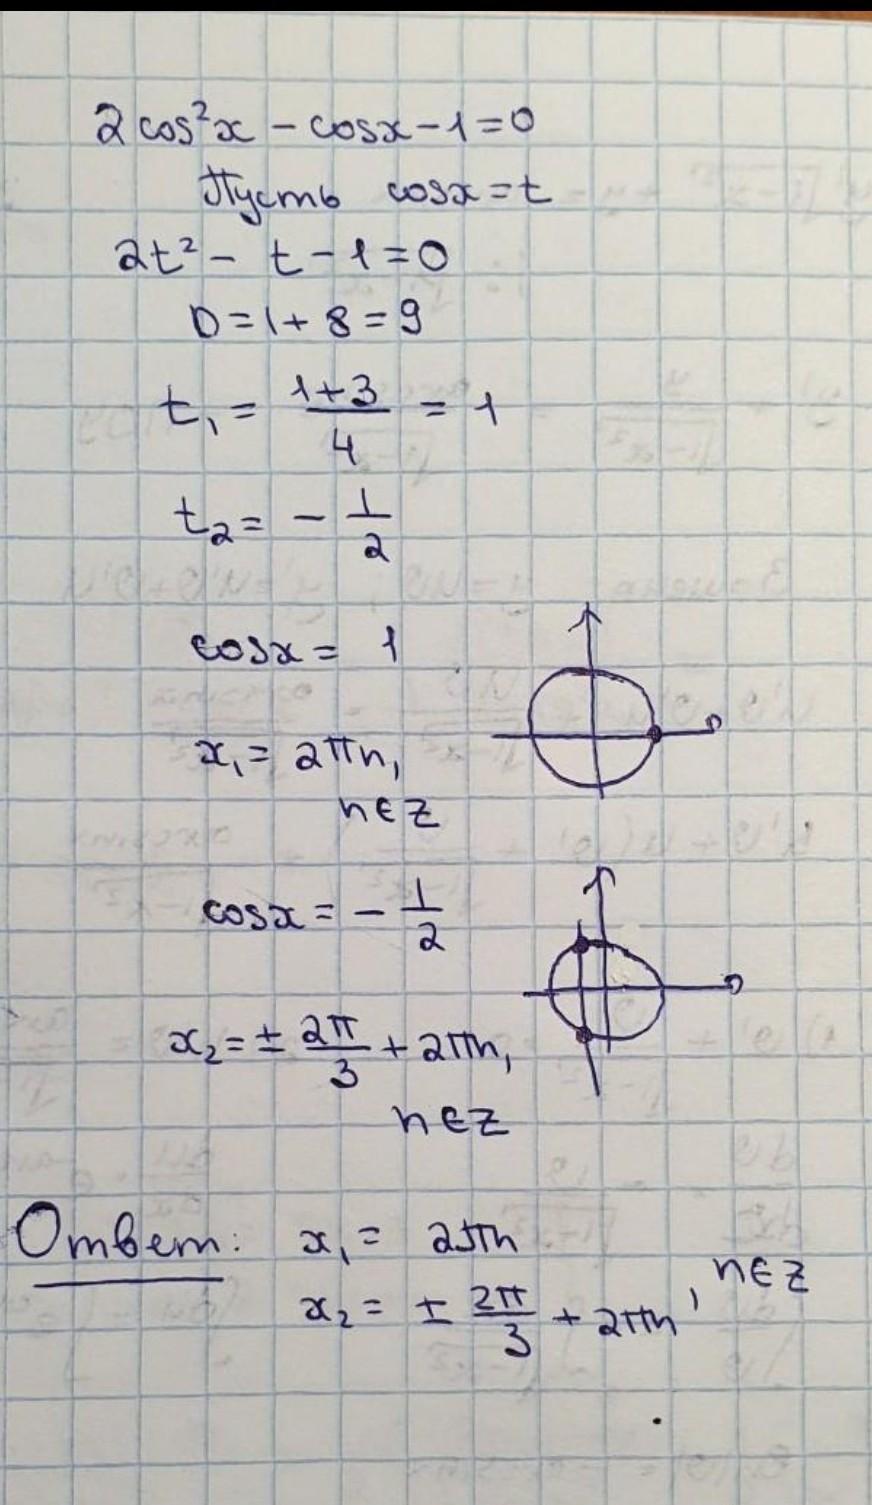 2cos²x - cosx - 1 = 0
Пусть cosx = t
2t² - t - 1 = 0
D = 1 + 8 = 9
t₁ = (1+3)/4 = 1
t₂ = - 1/2
cosx = 1
x₁ = 2πn,
n ∈ Z
cosx = - 1/2
x₂ = ± 2π/3 + 2πn,
n ∈ Z
Ответ: x₁ = 2πn
x₂ = ± 2π/3 + 2πn, n ∈ Z